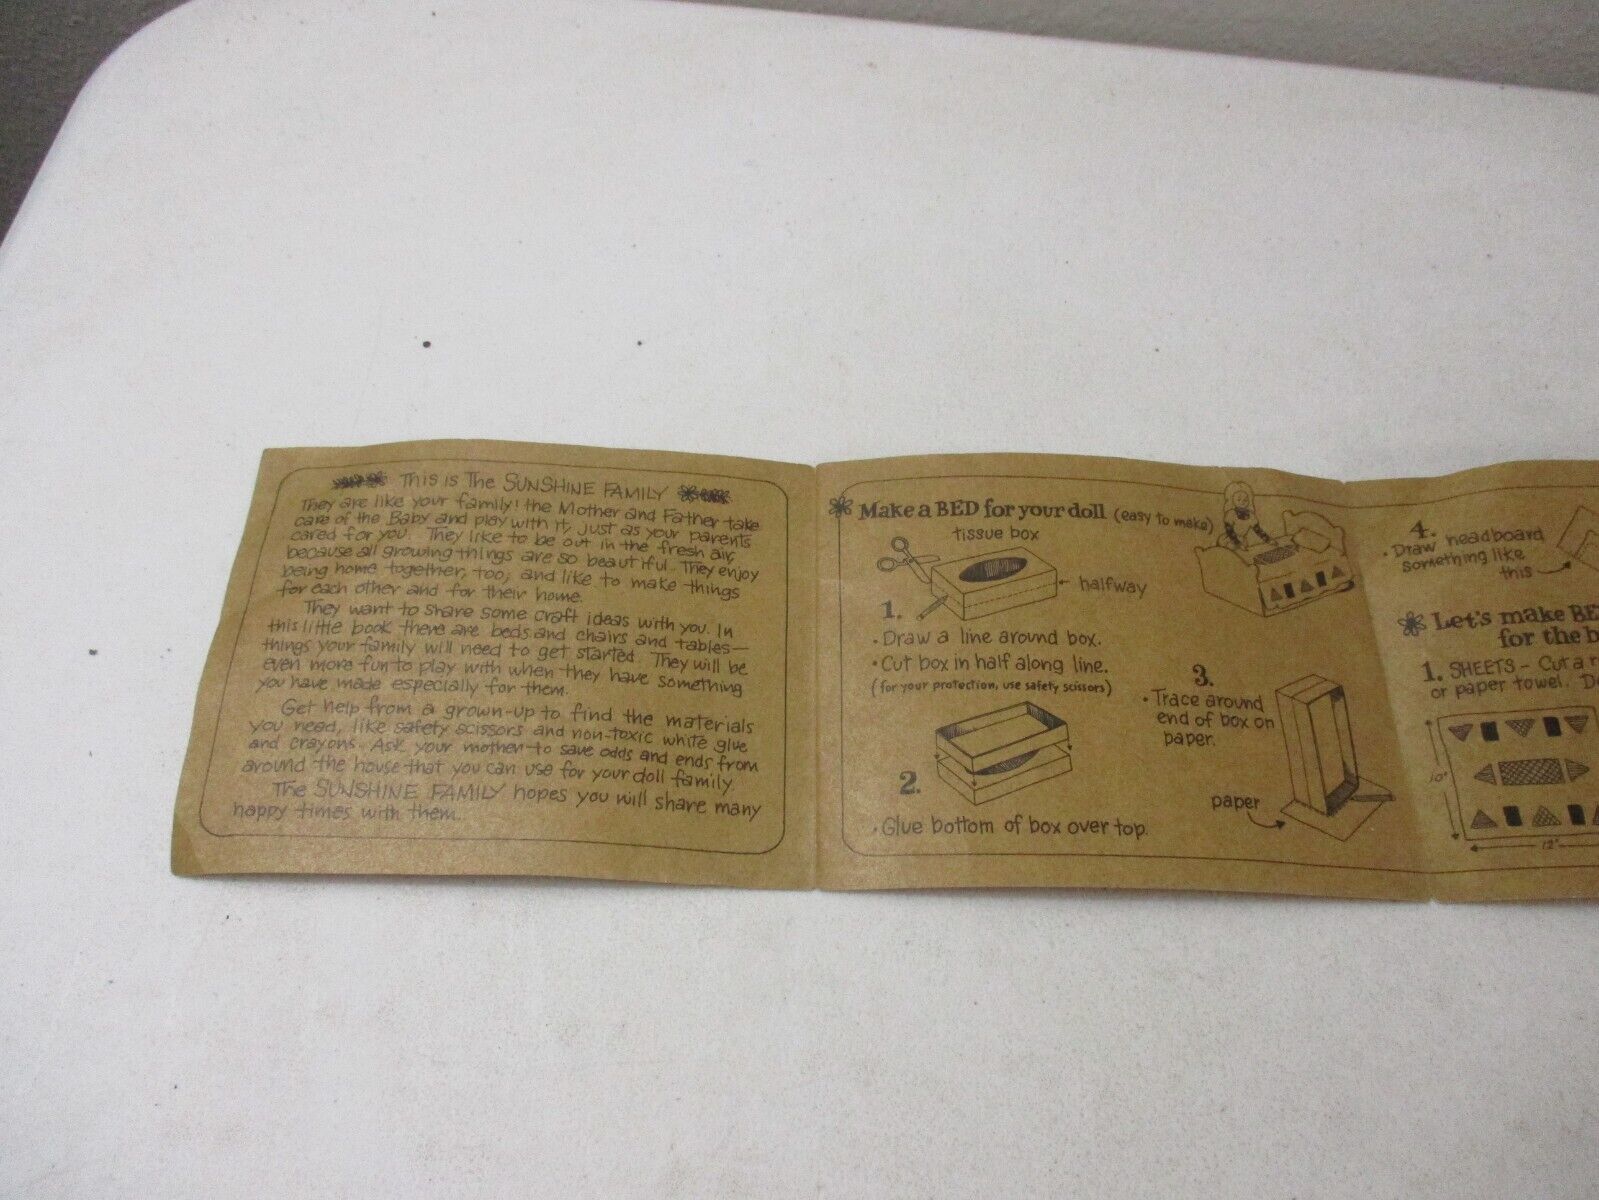 This is The SUNSHINE FAMILY
They are like your family! the Mother and Father take
care of the Baby and play with it, just as your parents
cared for you. They like to be out in the fresh air,
because all growing things are so beautiful. They enjoy
being home together, too, and like to make things
for each other and for their home.
They want to share some craft ideas with you. In
this little book there are beds and chairs and tables—
things your family will need to get started. They will be
even more fun to play with when they have something
you have made especially for them.
Get help from a grown-up to find the materials
you need, like safety scissors and non-toxic white glue
and crayons. Ask your mother to save odds and ends from
around the house that you can use for your doll family.
The SUNSHINE FAMILY hopes you will share many
happy times with them.
Make a BED for your doll (easy to make)
tissue box
halfway
1.
• Draw a line around box.
• Cut box in half along line.
(for your protection, use safety scissors)
2.
• Glue bottom of box over top.
3.
• Trace around
end of box on
paper.
paper
4.
• Draw headboard
something like
this
Let's make BE
for the b
1. SHEETS - Cut a r
or paper towel. De
10"
12"